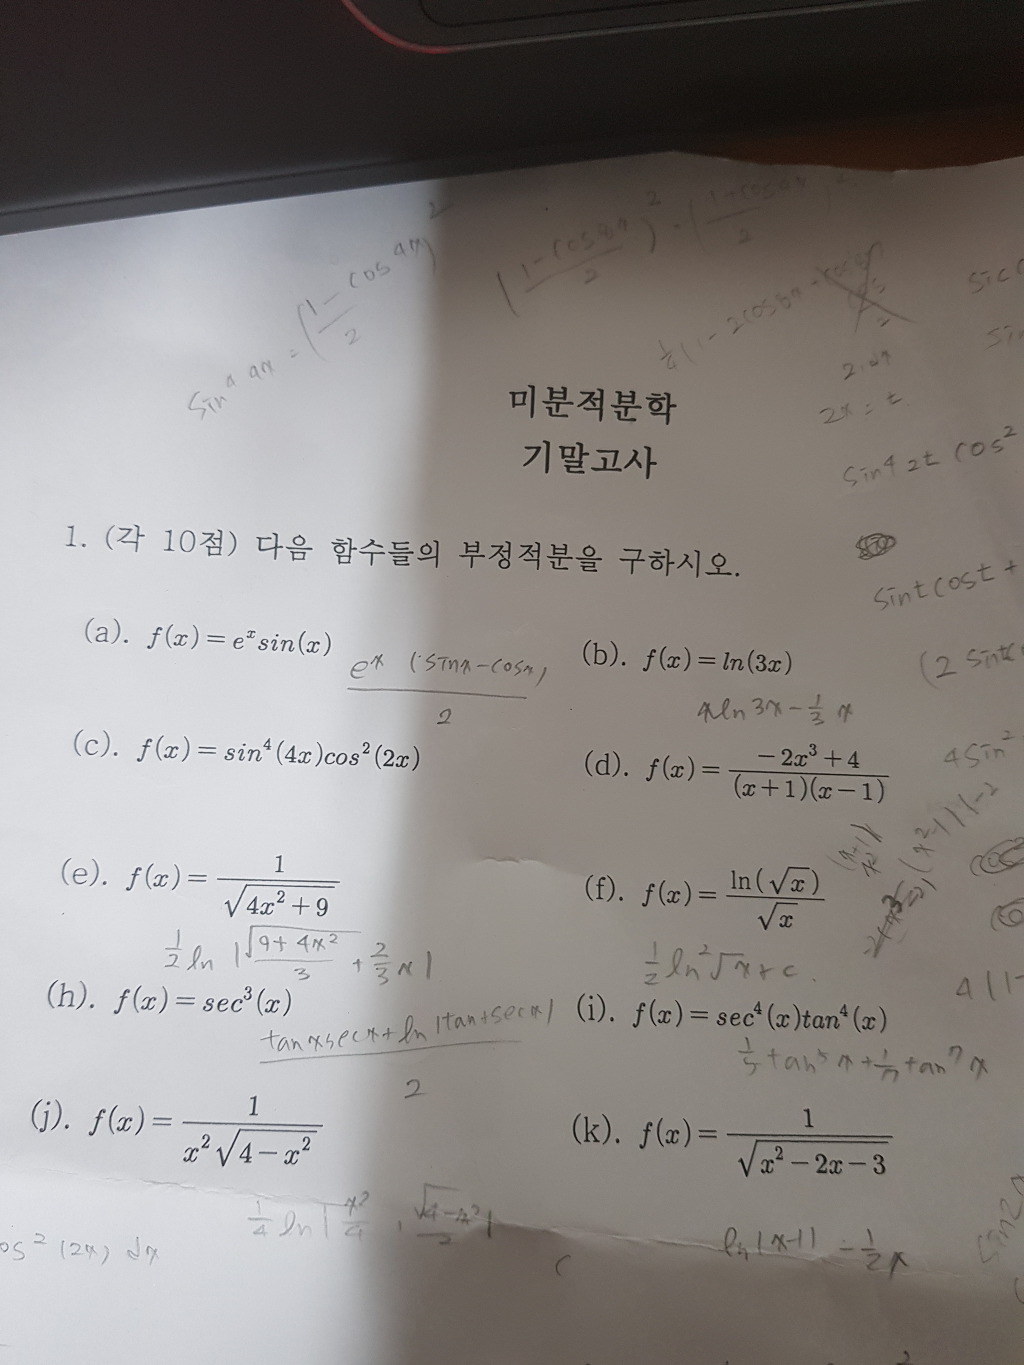 sin⁴ 4x = (1 - cos 4x / 2)²
(1 - cos 8x / 2)² · (1 + cos 4x / 2)²
2x = t
sin⁴ 2t cos²
미분적분학
기말고사
1. (각 10점) 다음 함수들의 부정적분을 구하시오.
sint cost +
(a). f(x) = eˣ sin(x)
eˣ (sinx - cosx) / 2
(b). f(x) = ln(3x)
xln 3x - 1/3 x
(2 sint
(c). f(x) = sin⁴(4x)cos²(2x)
(d). f(x) = (-2x³+4) / ((x+1)(x-1))
4 sin²
(e). f(x) = 1 / √(4x²+9)
1/2 ln | √(9+4x²) / 3 + 2/3 x |
(f). f(x) = ln(√x) / √x
1/2 ln² √x + c
(h). f(x) = sec³(x)
(tanx secx + ln |tan + secx|) / 2
(i). f(x) = sec⁴(x)tan⁴(x)
1/5 tan⁵ x + 1/7 tan⁷ x
(j). f(x) = 1 / (x²√(4-x²))
(k). f(x) = 1 / √(x²-2x-3)
ln |x-1| - 1/2 x
os² (2x) dx